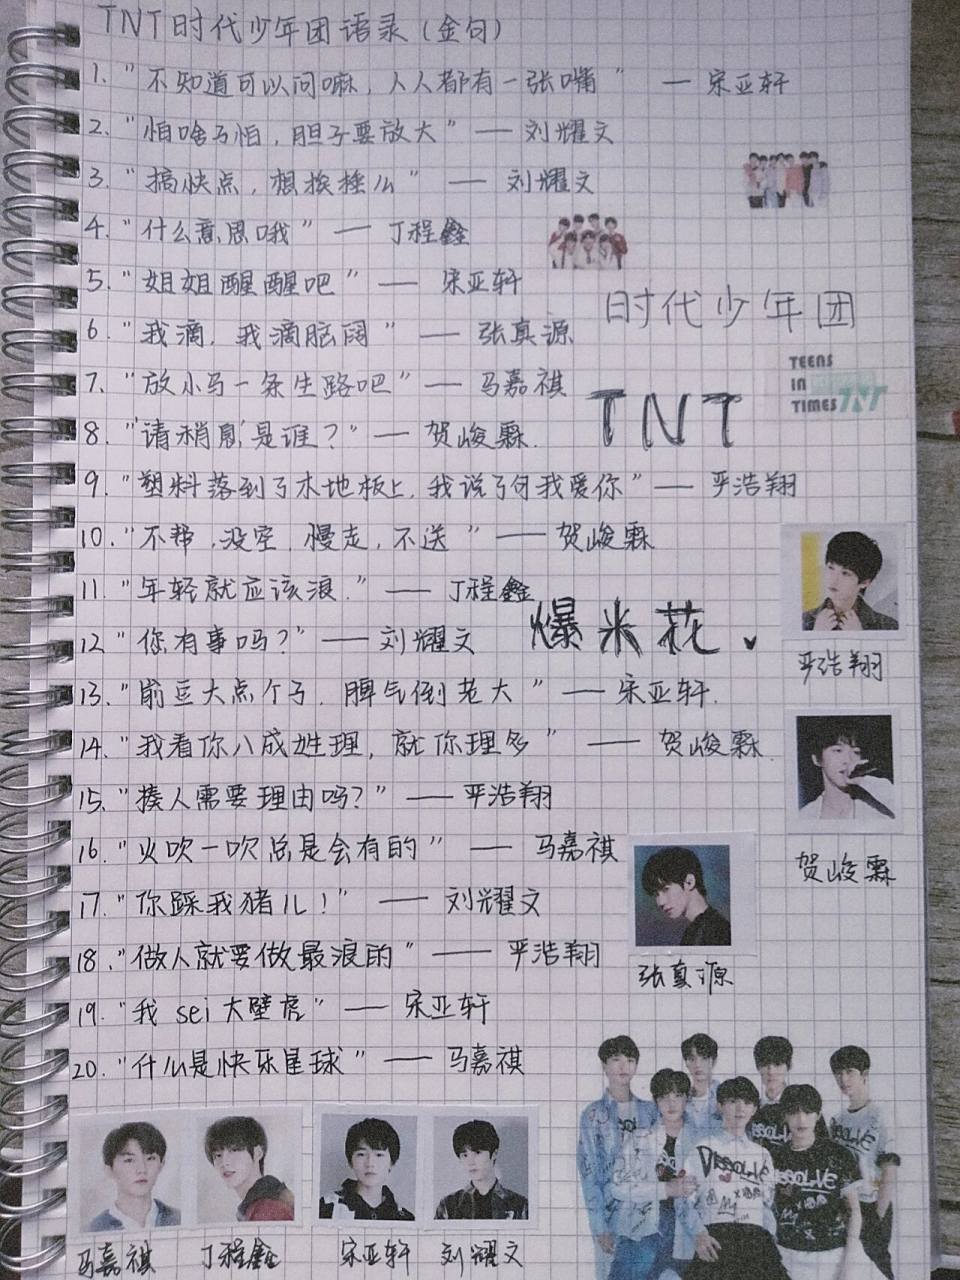 TNT时代少年团语录(金句)
1. "不知道可以问嘛,人人都有一张嘴" — 宋亚轩
2. "怕啥子怕,胆子要放大" — 刘耀文
3. "搞快点,想挨捶么" — 刘耀文
4. "什么意思哦" — 丁程鑫
5. "姐姐醒醒吧" — 宋亚轩
6. "我滴,我滴脑阔" — 张真源
时代少年团
7. "放小马一条生路吧" — 马嘉祺
TEENS
IN
TIMES TNT
TNT
8. "'请稍息'是谁?" — 贺峻霖.
9. "塑料落到了木地板上,我说了句我爱你" — 严浩翔
10. "不帮,没空,慢走,不送" — 贺峻霖
11. "年轻就应该浪." — 丁程鑫
爆米花
12 "你有事吗?" — 刘耀文
严浩翔
13. "前豆大点个子,脾气倒老大" — 宋亚轩.
14. "我看你八成姓理,就你理多" — 贺峻霖.
15. "揍人需要理由吗?" — 严浩翔
16. "火吹一吹总是会有的" — 马嘉祺
贺峻霖
17. "你踩我猪儿!" — 刘耀文
18. "做人就要做最浪的" — 严浩翔
张真源
19. "我sei大壁虎" — 宋亚轩
20. "什么是快乐星球" — 马嘉祺
DISSOLVE
DISSOLVE
马嘉祺 丁程鑫 宋亚轩 刘耀文